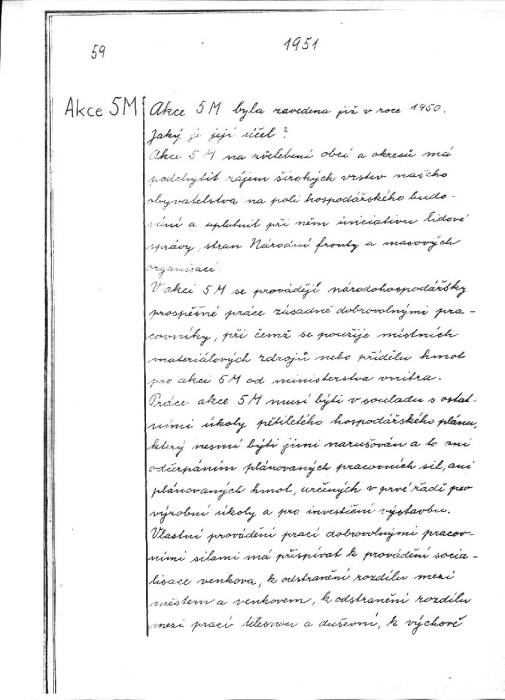 59
1951
Akce 5M
Akce 5M byla zavedena již v roce 1950.
Jaký je její účel?
Akce 5M na zvelebení obcí a okresů má
podchytit zájem širokých vrstev našeho
obyvatelstva na poli hospodářského budo-
vání a uplatnit při něm iniciativu lidové
správy, stran Národní fronty a masových
organisací.
V akci 5M se provádějí národohospodářsky
prospěšné práce zásadně dobrovolnými pra-
covníky, při čemž se použije místních
materiálových zdrojů nebo přídělu hmot
pro akci 5M od ministerstva vnitra.
Práce akce 5M musí býti v souladu s ostat-
ními úkoly pětiletého hospodářského plánu,
který nesmí býti jimi narušován a to ani
odčerpáním plánovaných pracovních sil, ani
plánovaných hmot, určených v prvé řadě pro
výrobní úkoly a pro investiční výstavbu.
Vlastní provádění prací dobrovolnými pracov-
ními silami má přispívat k provádění socia-
lisace venkova, k odstranění rozdílu mezi
městem a venkovem, k odstranění rozdílu
mezi prací tělesnou a duševní, k výchově